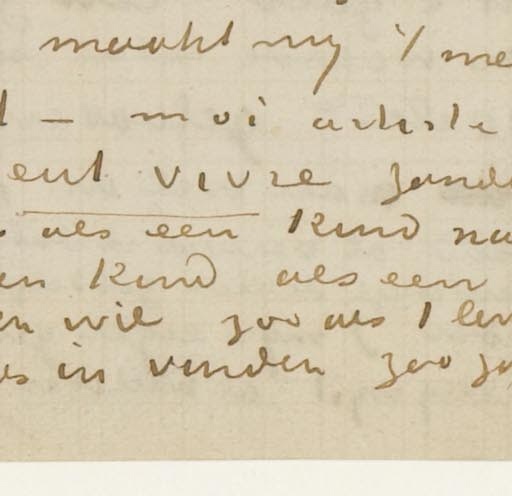 maakt my 't me
t – moi artiste
eut vivre zond
als een kind na
en kind als een
en wil zoo als 1 len
us in vinden zoo zo